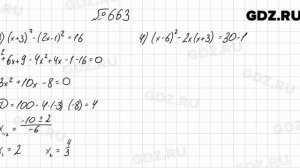 GDZ.RU
№ 663
) (x+3)² - (2x-1)² = 16
² + 6x + 9 - 4x² + 4x - 1 - 16 = 0
3x² + 10x - 8 = 0
D = 100 - 4·(-3)·(-8) = 4
x₁,₂ = (-10 ± 2)/(-6)
x₁ = 2 x₂ = 4/3
4) (x-6)² - 2x(x+3) = 30 - 1
GDZ.RU